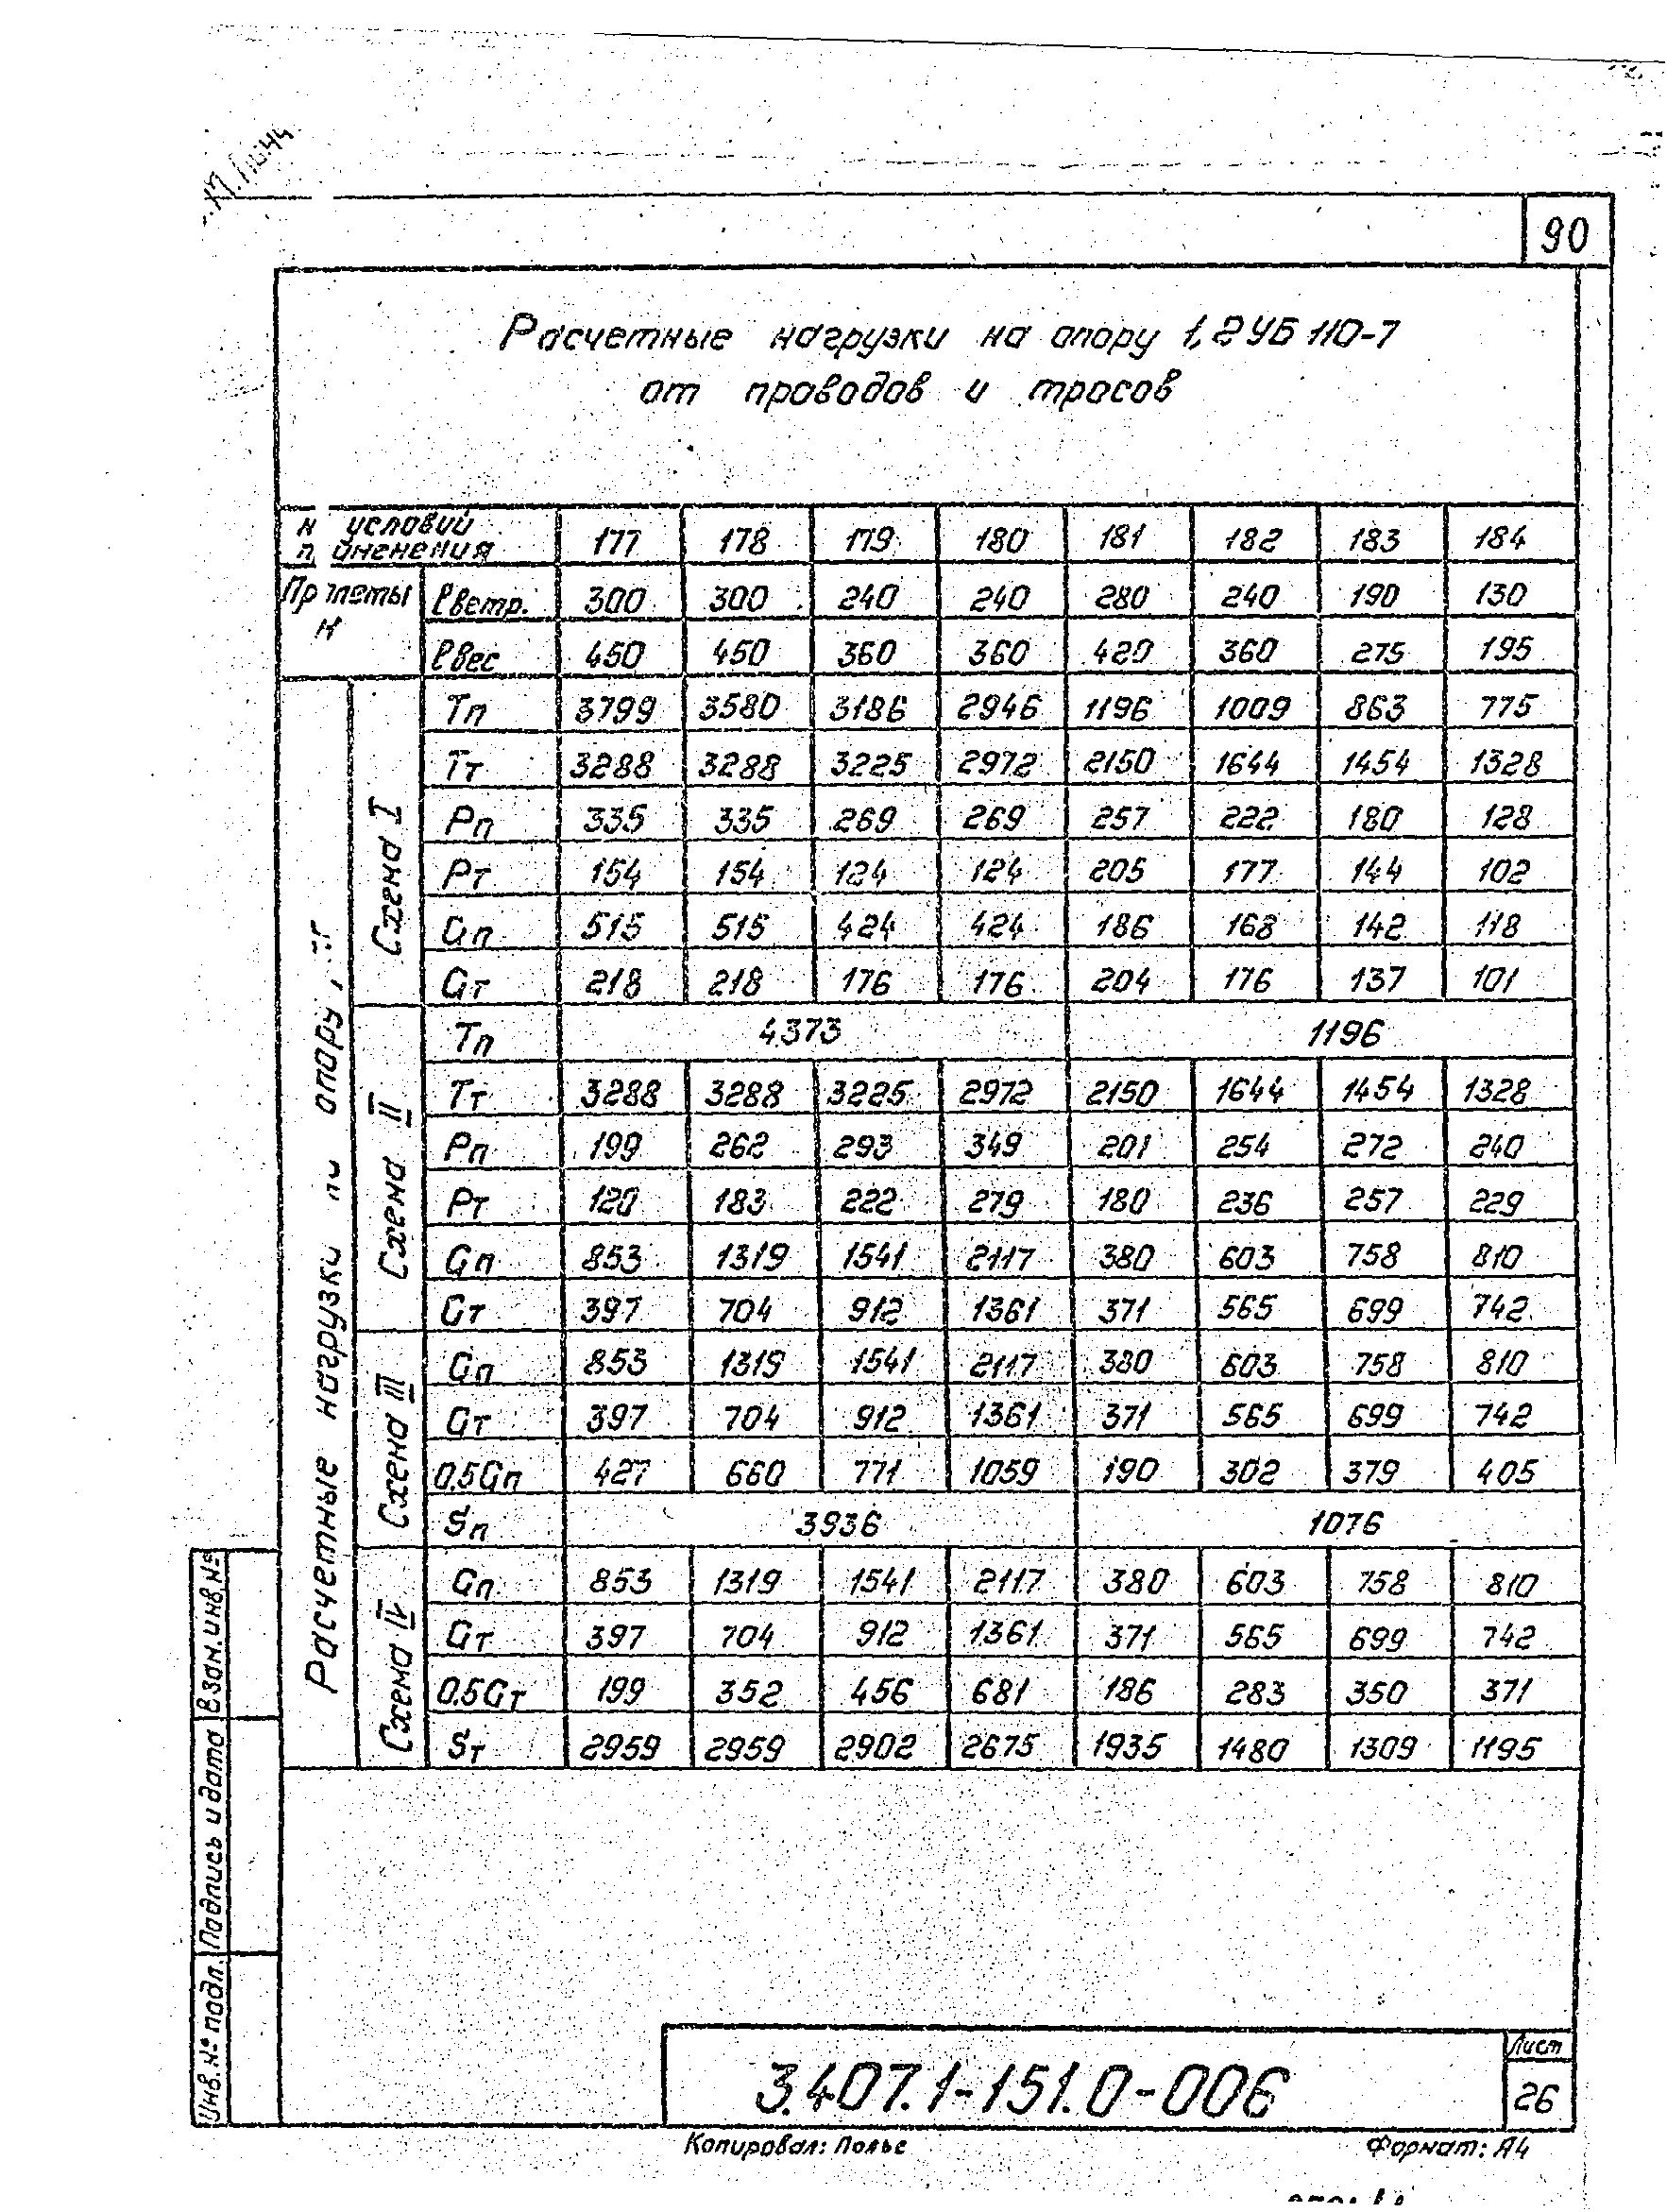 90
Расчетные нагрузки на опору 1,2УБ110-7
от проводов и тросов
условий 177 178 179 180 181 182 183 184
lветр. 300 300 240 240 280 240 190 130
lвес 450 450 360 360 420 360 275 195
Расчетные нагрузки на опору,
Схема I
Тп 3799 3580 3186 2946 1196 1009 863 775
Тт 3288 3288 3225 2972 2150 1644 1454 1328
Рп 335 335 269 269 257 222 180 128
Рт 154 154 124 124 205 177 144 102
Gп 515 515 424 424 186 168 142 118
Gт 218 218 176 176 204 176 137 101
Схема II
Тп 4373 1196
Тт 3288 3288 3225 2972 2150 1644 1454 1328
Рп 199 262 293 349 201 254 272 240
Рт 120 183 222 279 180 236 257 229
Gп 853 1319 1541 2117 380 603 758 810
Gт 397 704 912 1361 371 565 699 742
Схема III
Gп 853 1319 1541 2117 380 603 758 810
Gт 397 704 912 1361 371 565 699 742
0.5Gп 427 660 771 1059 190 302 379 405
Sп 3936 1076
Схема IV
Gп 853 1319 1541 2117 380 603 758 810
Gт 397 704 912 1361 371 565 699 742
0.5Gт 199 352 456 681 186 283 350 371
Sт 2959 2959 2902 2675 1935 1480 1309 1195
Взам.инв.№
Подпись и дата
Инв.№ подл.
3.407.1-151.0-006
Лист
26
Копировал: Полье
Формат: А4